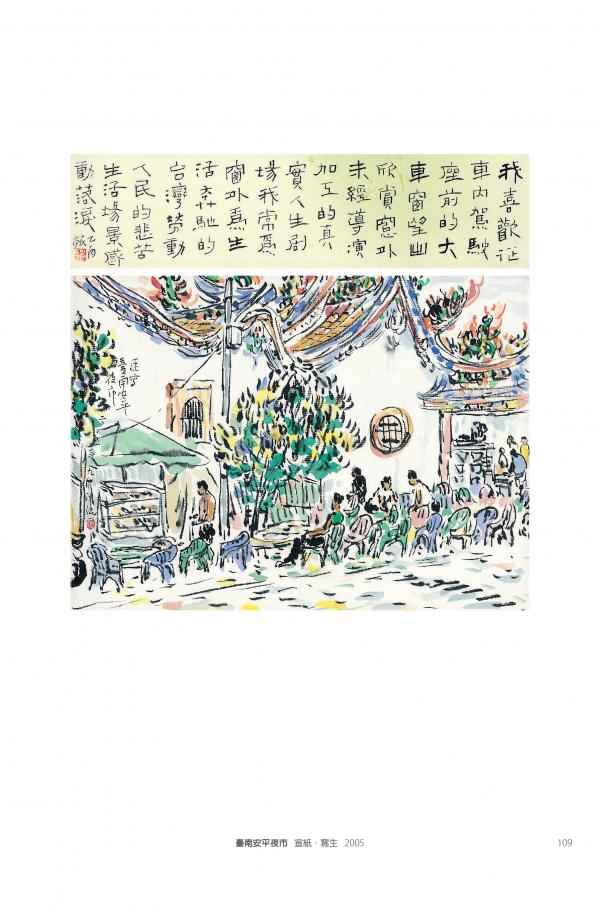 我喜歡從
車內駕駛
座前的大
車窗望出
欣賞窗外
未經導演
加工的真
實人生劇
場我常為
窗外為生
活奔馳的
台灣勞動
人民的悲苦
生活場景感
動落淚 乙酉
臺南安平
夜市
臺南安平夜市 宣紙・寫生 2005
109